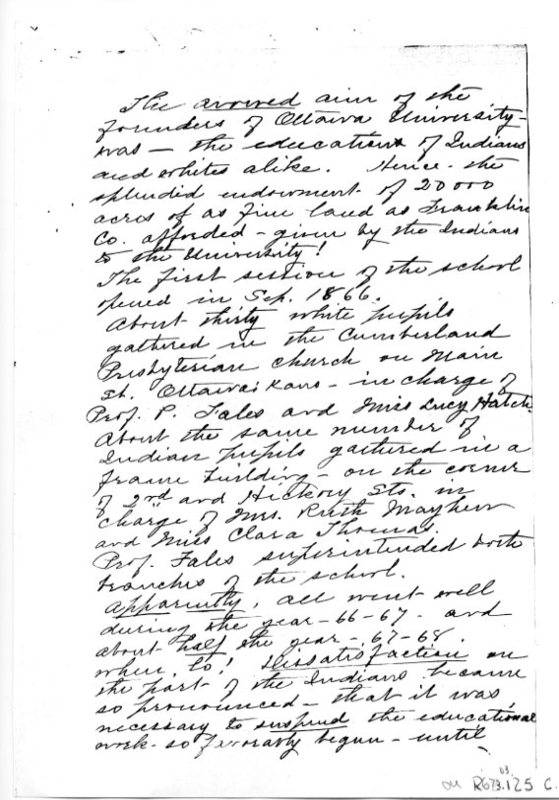 The avowed aim of the
founders of Ottawa University-
was - the education of Indians
and whites alike. Hence - the
splendid endowment - of 20000
acres of as fine land as Franklin
Co. afforded - given by the Indians
to the University!
The first session of the school
opened in Sep. 1866.
About thirty white pupils
gathered in the Cumberland
Presbyterian church on Main
St. Ottawa: Kans - in charge of
Prof. P. Fales and Miss Lucy Hatch.
About the same number of
Indian pupils gathered in a
frame building - on the corner
of 2nd and Hickory Sts. in
charge of Mrs. Ruth Mayhew
and Miss Clara Thomas.
Prof. Fales superintended both
branches of the school.
Apparently, all went well
during the year - 66-67 - and
about half the year - 67-68.
when, lo! Dissatisfaction on
the part of the Indians became
so pronounced - that it was
necessary to suspend the educational
work - so begun - until
03.
R673.125 C.